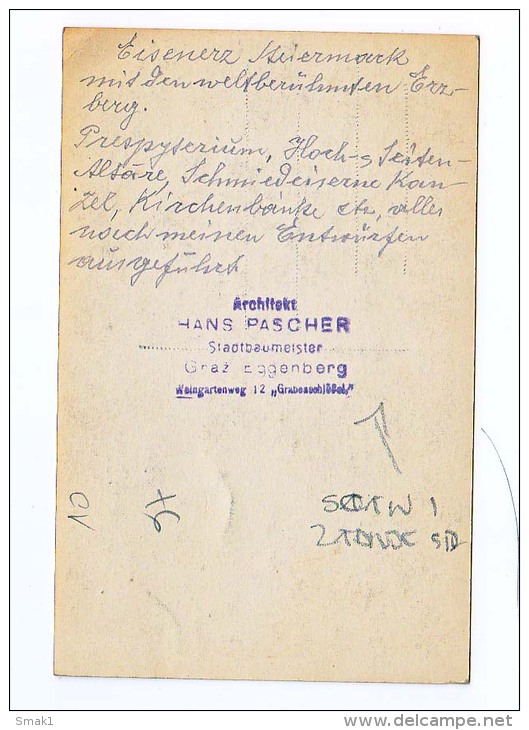 Eisenerz Steiermark
mit den weltberühmten Erz-
berg.
Prespyterium, Hoch- Seiten-
Altäre, Schmiedeiserne Kan-
zel, Kirchenbänke etc, alles
nach meinen Entwürfen
ausgeführt
Architekt
HANS PASCHER
Stadtbaumeister
Graz Eggenberg
Weingartenweg 12 „Grabenschlößel“
10
Smak1
www.delcampe.net